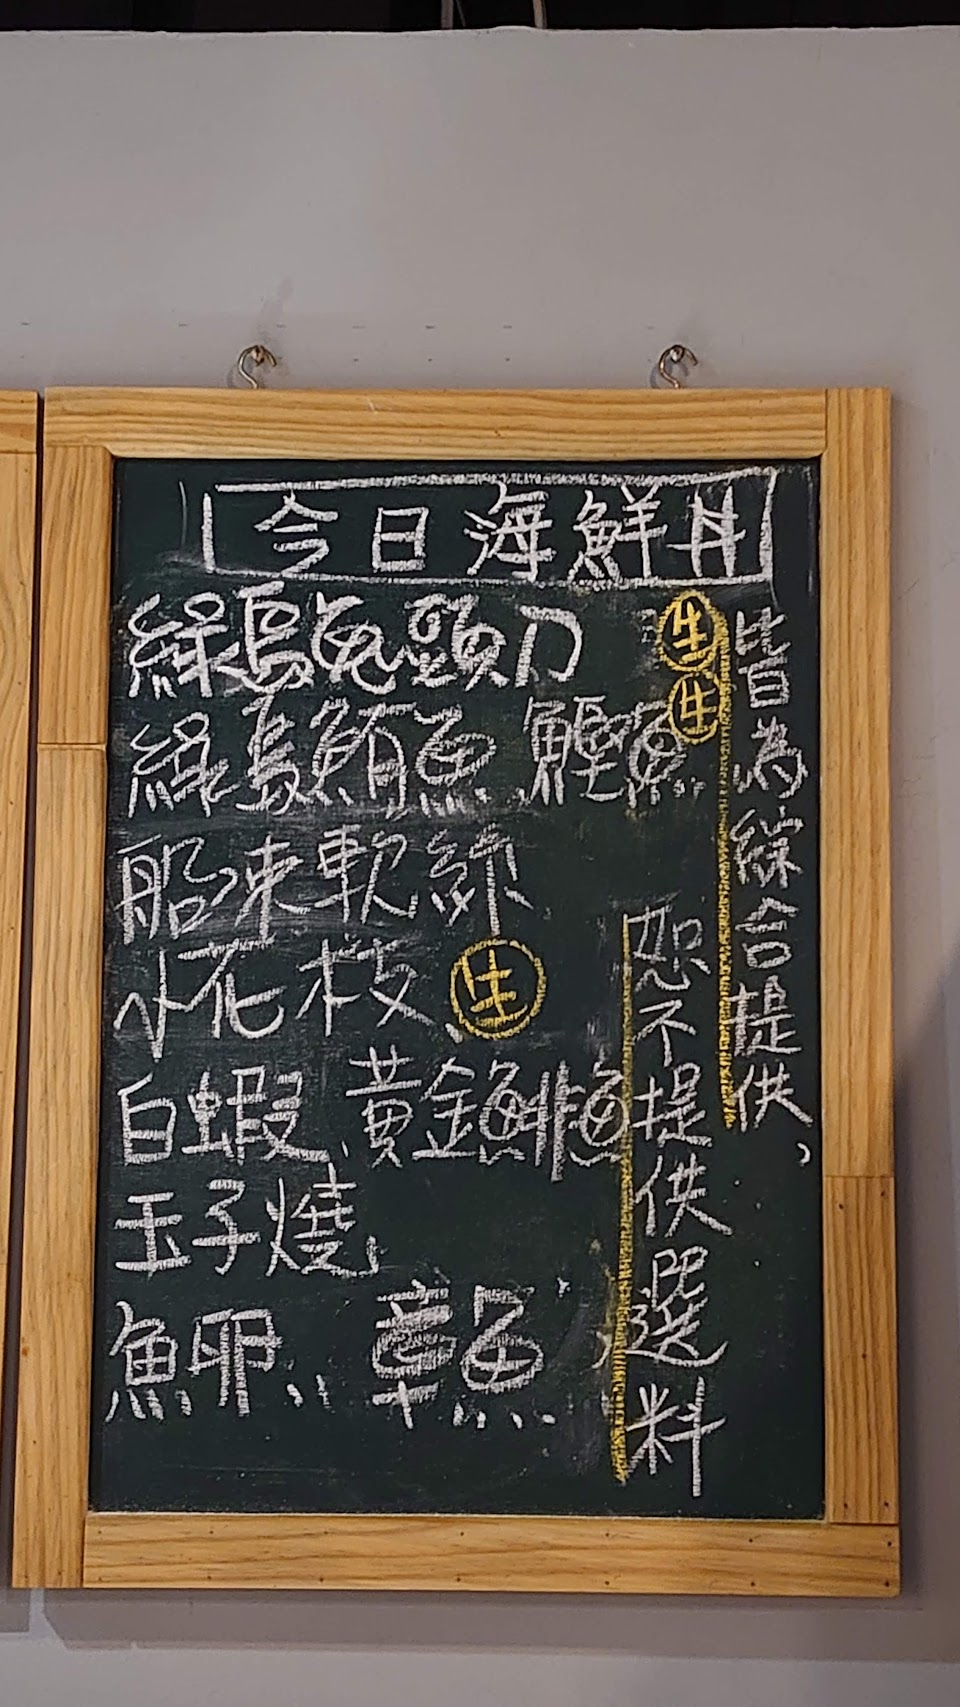 今日海鮮丼
綠島鬼頭刀 生
綠島鮪魚 鰹魚 生
船凍軟絲
小花枝、生
白蝦、黃金鯡魚
玉子燒、
魚卵、、章魚
皆為綜合提供、
恕不提供選料